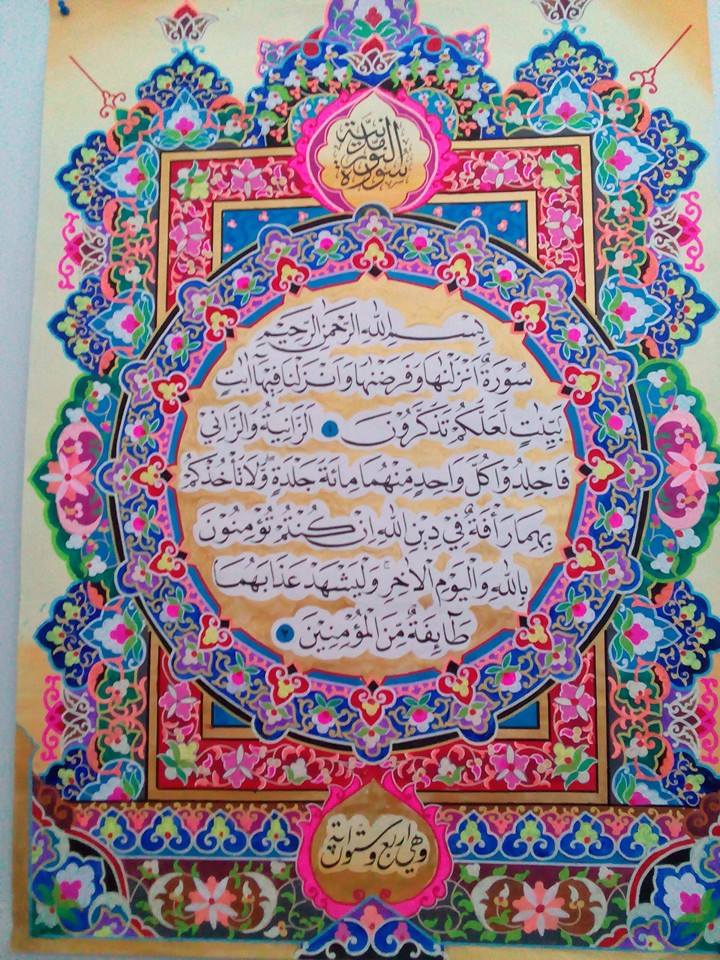 سورة النور مدنية
بِسْمِ اللهِ الرَّحْمٰنِ الرَّحِيْمِ
سُوْرَةٌ اَنْزَلْنٰهَا وَفَرَضْنٰهَا وَاَنْزَلْنَا فِيْهَآ اٰيٰتٍ
بَيِّنٰتٍ لَّعَلَّكُمْ تَذَكَّرُوْنَ ١ اَلزَّانِيَةُ وَالزَّانِيْ
فَاجْلِدُوْا كُلَّ وَاحِدٍ مِّنْهُمَا مِائَةَ جَلْدَةٍ وَّلَا تَأْخُذْكُمْ
بِهِمَا رَأْفَةٌ فِيْ دِيْنِ اللهِ اِنْ كُنْتُمْ تُؤْمِنُوْنَ
بِاللهِ وَالْيَوْمِ الْاٰخِرِۚ وَلْيَشْهَدْ عَذَابَهُمَا
طَآئِفَةٌ مِّنَ الْمُؤْمِنِيْنَ ٢
وهي اربع وستون اية